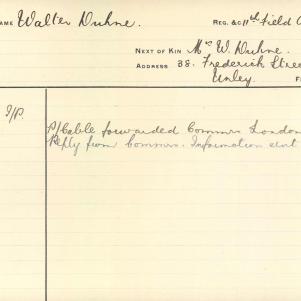 NAME Walter Duhne. REG. &C 11th Field
NEXT OF KIN Mrs W. Duhne.
ADDRESS 38. Frederick Stree
Unley.
P/Cable forwarded Commrs London
Reply from Commrs. Information sent